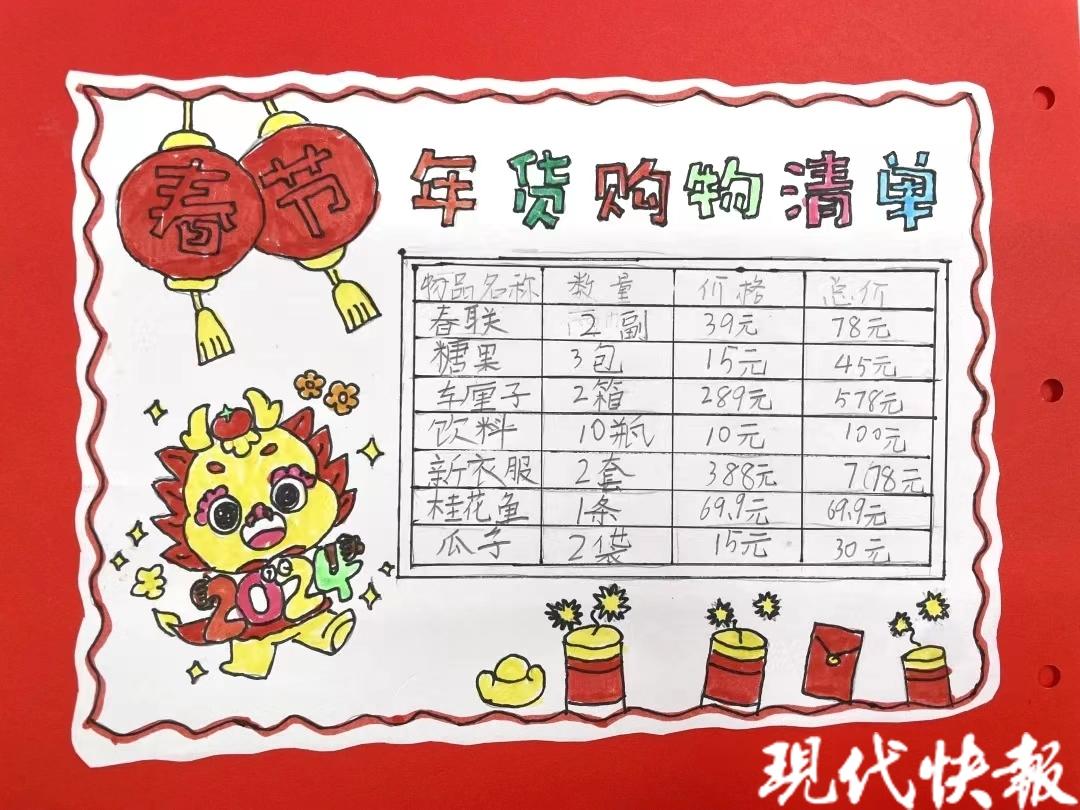 春节
年货购物清单
物品名称 数量 价格 总价
春联 2副 39元 78元
糖果 3包 15元 45元
车厘子 2箱 289元 578元
饮料 10瓶 10元 100元
新衣服 2套 388元 7178元
桂花鱼 1条 69.9元 69.9元
瓜子 2袋 15元 30元
2024
现代快報